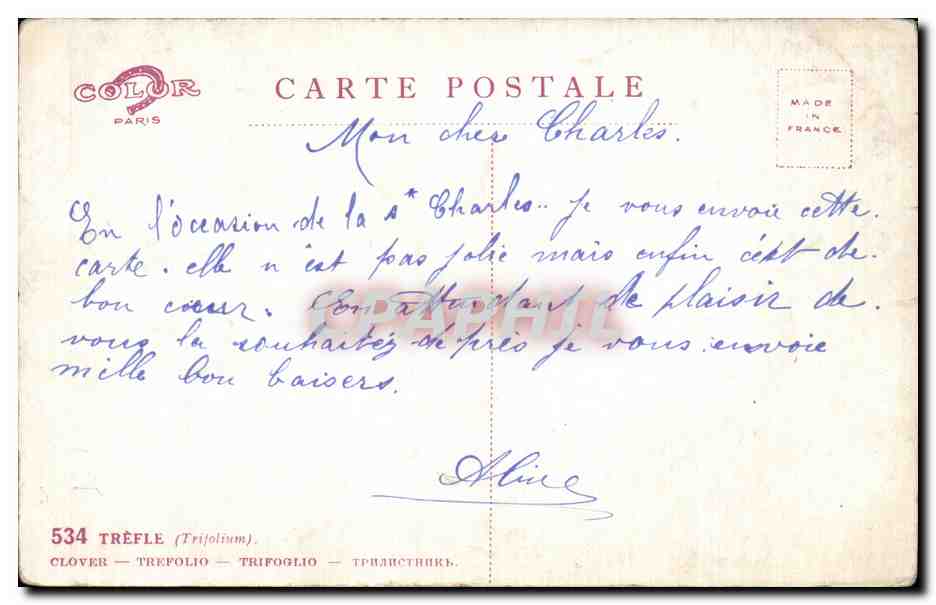 COLOR
PARIS
CARTE POSTALE
MADE
IN
FRANCE
Mon cher Charles.
En l'occasion de la St Charles.. je vous envoie cette.
carte. elle n'est pas jolie mais enfin c'est de.
bon cœur. En attendant de plaisir de.
vous la souhaitez de pres je vous envoie
mille bon baisers.
Aline
CPAPHIL
534 TRÈFLE (Trifolium).
CLOVER — TREFOLIO — TRIFOGLIO — ТРИЛИСТНИКЬ.